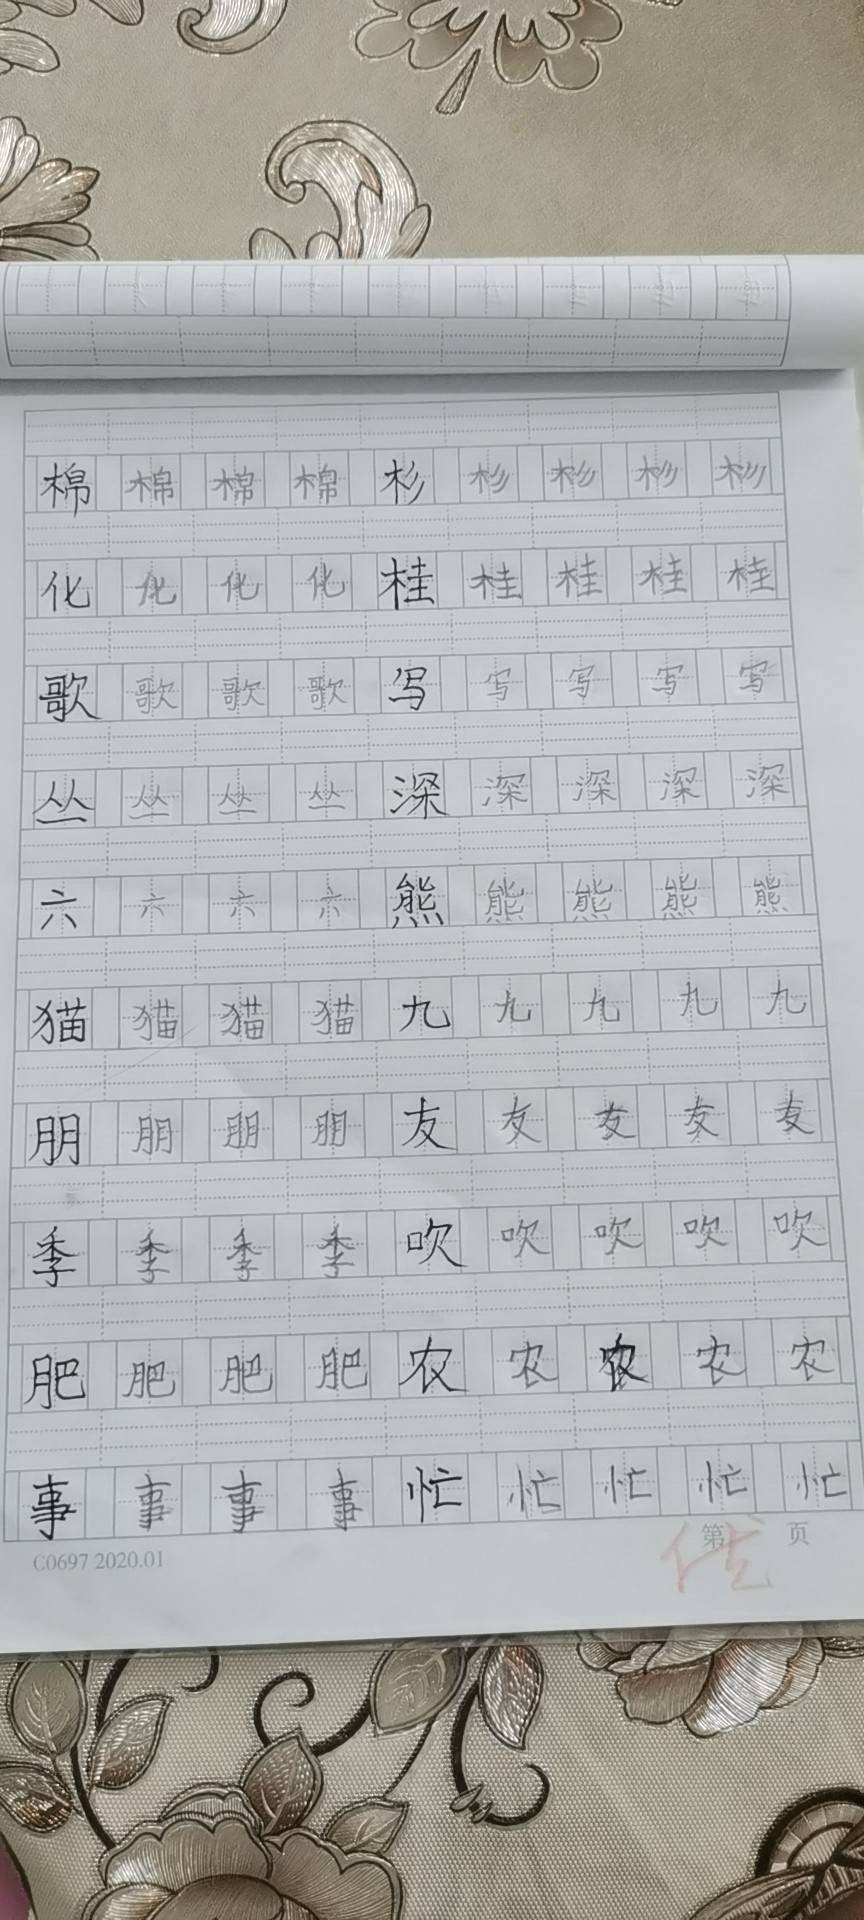 棉棉棉棉杉杉杉杉杉
化化化化桂桂桂桂桂
歌歌歌歌写写写写写
丛丛丛丛深深深深深
六六六六熊熊熊熊熊
猫猫猫猫九九九九九
朋朋朋朋友友友友友
季季季季吹吹吹吹吹
肥肥肥肥农农农农农
事事事事忙忙忙忙忙
C0697 2020.01 第 页
优